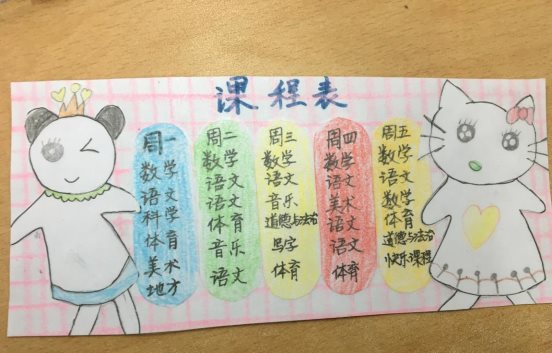 课程表
周一
数学
语文
科学
体育
美术
地方
周二
数学
语文
语文
体育
音乐
语文
周三
数学
语文
音乐
道德与法治
写字
体育
周四
数学
语文
美术
语文
语文
体育
周五
数学
语文
数学
体育
道德与法治
快乐课程